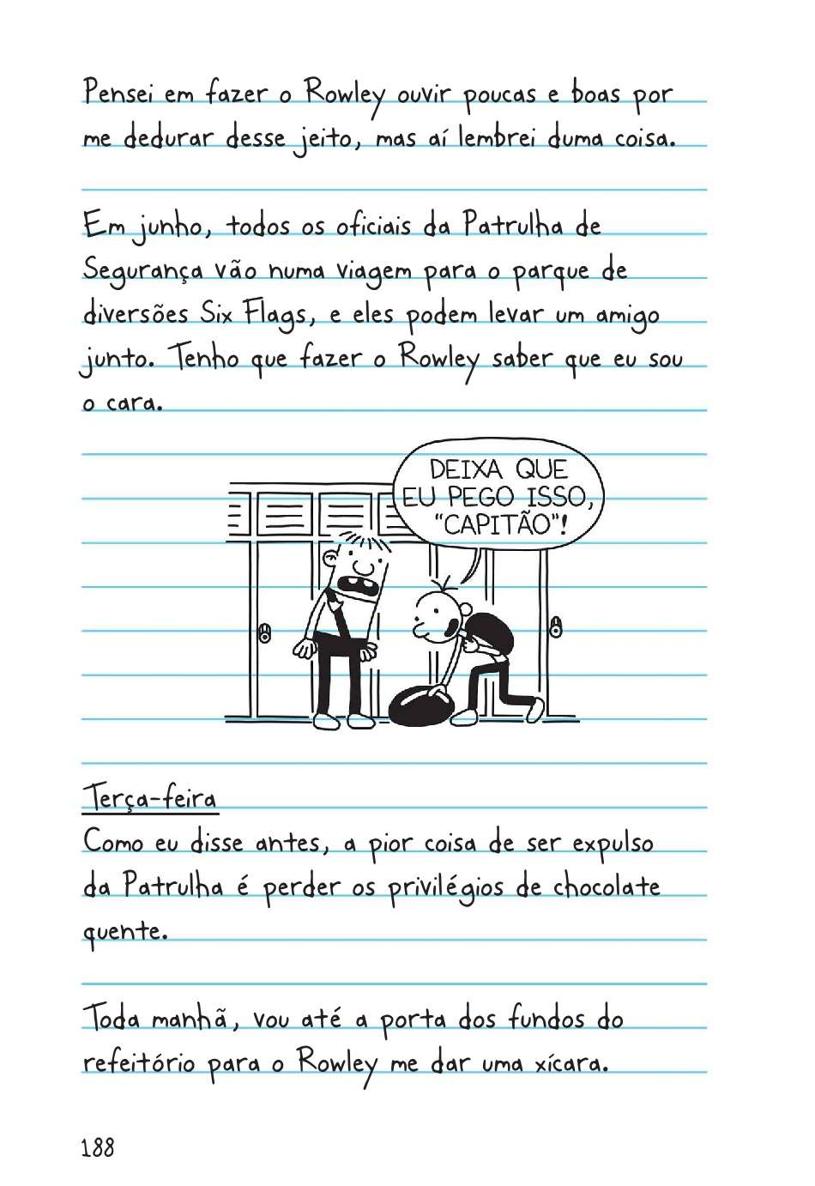 Pensei em fazer o Rowley ouvir poucas e boas por
me dedurar desse jeito, mas aí lembrei duma coisa.
Em junho, todos os oficiais da Patrulha de
Segurança vão numa viagem para o parque de
diversões Six Flags, e eles podem levar um amigo
junto. Tenho que fazer o Rowley saber que eu sou
o cara.
DEIXA QUE
EU PEGO ISSO,
"CAPITÃO"!
Terça-feira
Como eu disse antes, a pior coisa de ser expulso
da Patrulha é perder os privilégios de chocolate
quente.
Toda manhã, vou até a porta dos fundos do
refeitório para o Rowley me dar uma xícara.
188